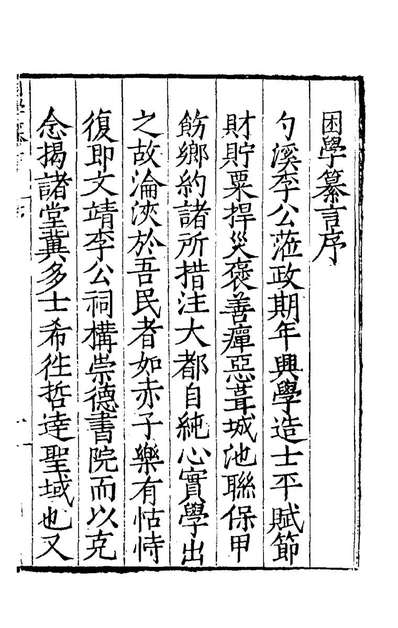 困學纂言序
勺溪李公蒞政期年興學造士平賦節
財貯粟捍災褒善癉惡葺城池聯保甲
飭鄉約諸所措注大都自純心實學出
之故淪浹於吾民者如赤子樂有怙恃
復即文靖李公祠構崇德書院而以克
念揭諸堂冀多士希徃哲達聖域也又